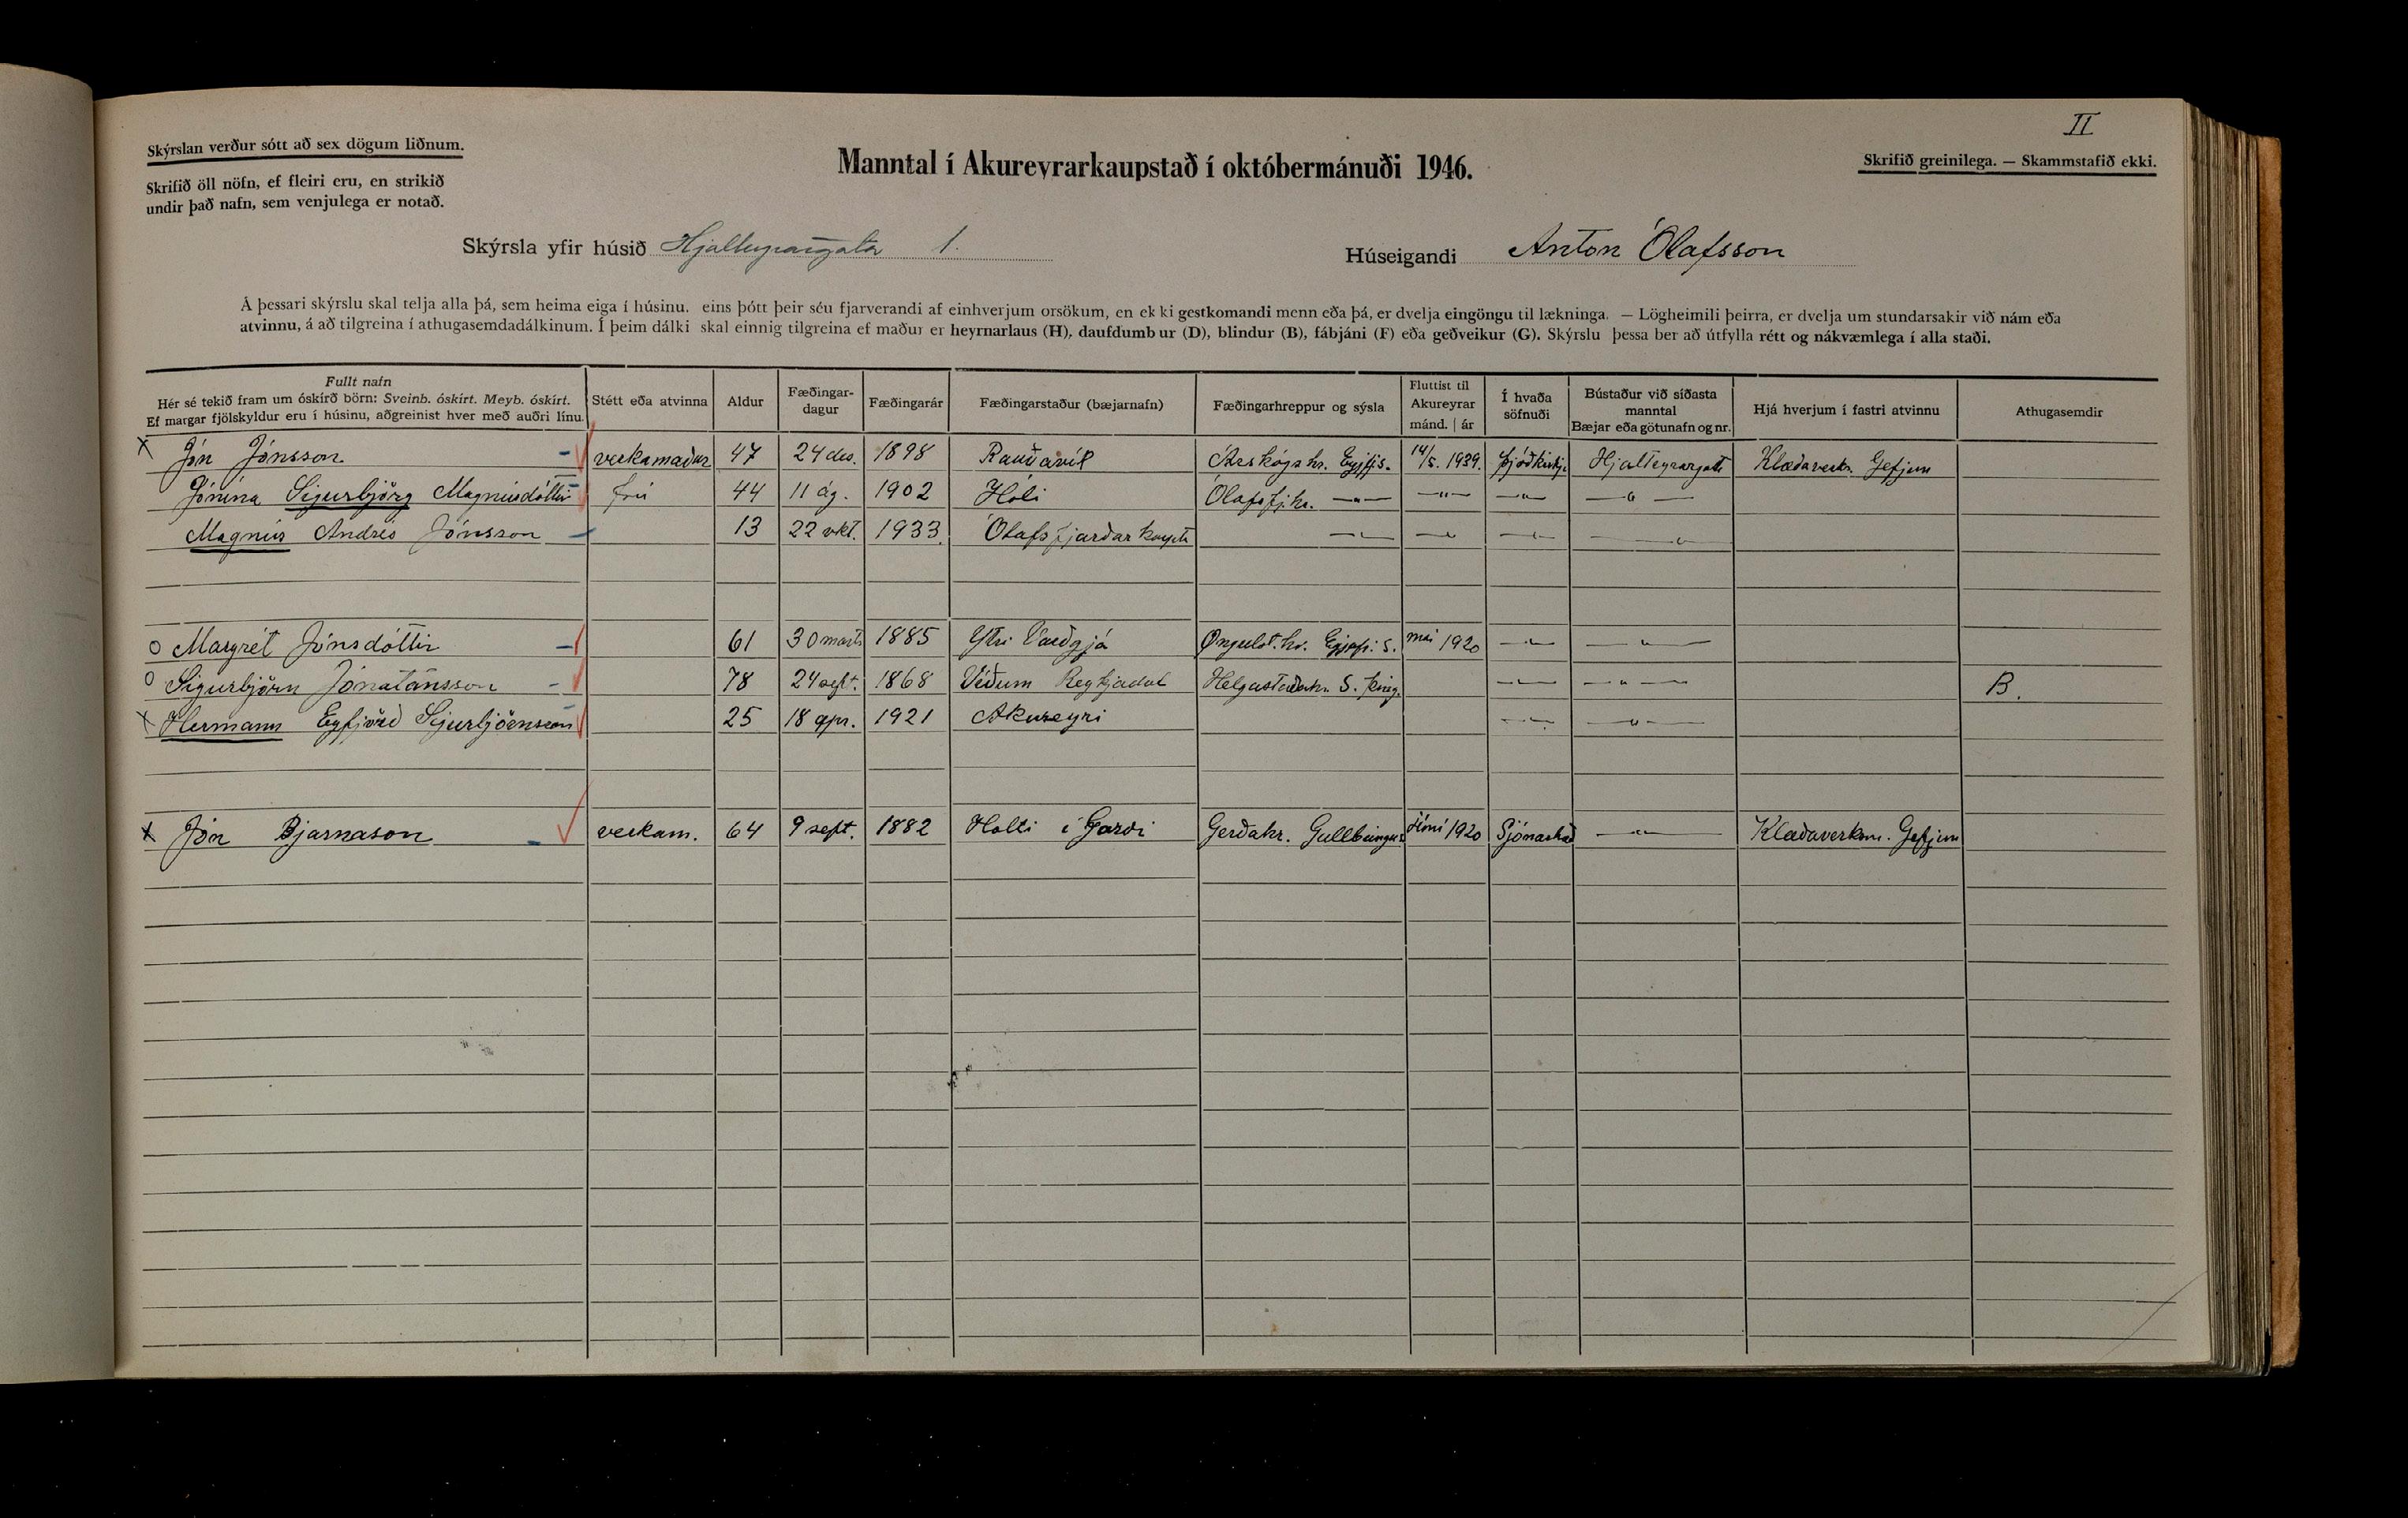 II
Skýrslan verður sótt að sex dögum liðnum.
Manntal í Akureyrarkaupstað í októbermánuði 1946.
Skrifið greinilega. — Skammstafið ekki.
Skrifið öll nöfn, ef fleiri eru, en strikið
undir það nafn, sem venjulega er notað.
Skýrsla yfir húsið Hjalteyrargata 1.
Húseigandi Anton Ólafsson
Á þessari skýrslu skal telja alla þá, sem heima eiga í húsinu. eins þótt þeir séu fjarverandi af einhverjum orsökum, en ekki gestkomandi menn eða þá, er dvelja eingöngu til lækninga. — Lögheimili þeirra, er dvelja um stundarsakir við nám eða
atvinnu, á að tilgreina í athugasemdadálkinum. Í þeim dálki skal einnig tilgreina ef maður er heyrnarlaus (H), daufdumbur (D), blindur (B), fábjáni (F) eða geðveikur (G). Skýrslu þessa ber að útfylla rétt og nákvæmlega í alla staði.
Fullt nafn
Hér sé tekið fram um óskírð börn: Sveinb. óskírt. Meyb. óskírt.
Ef margar fjölskyldur eru í húsinu, aðgreinist hver með auðri línu.
Stétt eða atvinna
Aldur
Fæðingar-
dagur
Fæðingarár
Fæðingarstaður (bæjarnafn)
Fæðingarhreppur og sýsla
Fluttist til
Akureyrar
mánd. | ár
Í hvaða
söfnuði
Bústaður við síðasta
manntal
Bæjar eða götunafn og nr.
Hjá hverjum í fastri atvinnu
Athugasemdir
x Jón Jónsson verkamaður 47 24 des. 1898 Rauðavík Árskógshr. Eyjfjs. 14/5. 1939. Þjóðkirkj. Hjalteyrargata Klæðaverks. Gefjun
Jónína Sigurbjörg Magnúsdóttir frú 44 11 ág. 1902 Hóli Ólafsfj.hr. —"— —"— —"— —"—
Magnús Andrés Jónsson 13 22 okt. 1933. Ólafsfjarðarkaupst —"— —"— —"— —"—
o Margrét Jónsdóttir 61 30 marts 1885 Ytri Varðgjá Öngulst.hr. Eyjafj.s. maí 1920 —"— —"—
o Sigurbjörn Jónatansson 78 24 sept. 1868 Víðum Reykjadal Helgastaðahr. S. Þing. —"— —"— B.
x Hermann Eyfjörð Sigurbjörnsson 25 18 apr. 1921 Akureyri —"— —"—
x Jón Bjarnason verkam. 64 9 sept. 1882 Holti í Garði Gerðahr. Gullbringus júní 1920 Sjónarhæð —"— Klæðaverksm. Gefjun